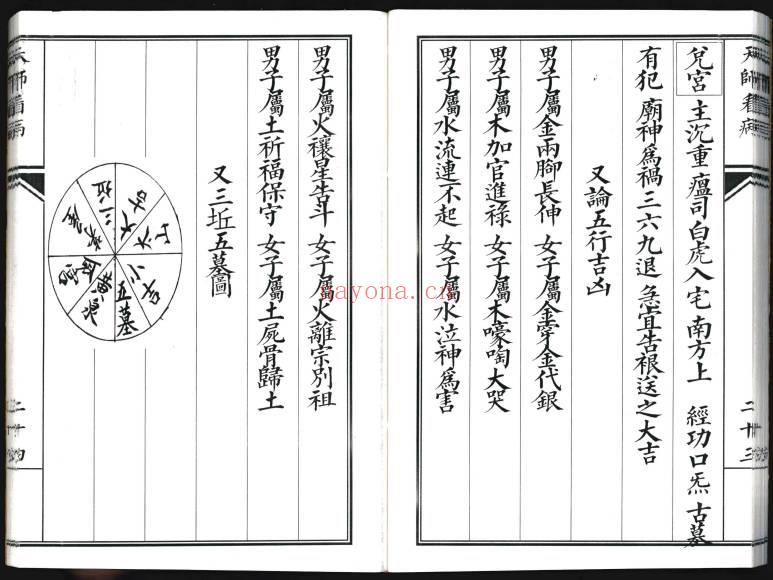 兌宮 主沉重瘟司白虎入宅南方上 經功口炁古墓
有犯 廟神爲禍三六九退 急宜告禳送之大吉
又論五行吉凶
男子屬金兩腳長伸 女子屬金穿金代銀
男子屬木加官進祿 女子屬木嚎啕大哭
男子屬水流連不起 女子屬水泣神爲害
男子屬火禳星告斗 女子屬火離宗別祖
男子屬土祈福保守 女子屬土屍骨歸土
又三坵五墓圖
五墓
天師看病
二十三
二十四
nayona.cn